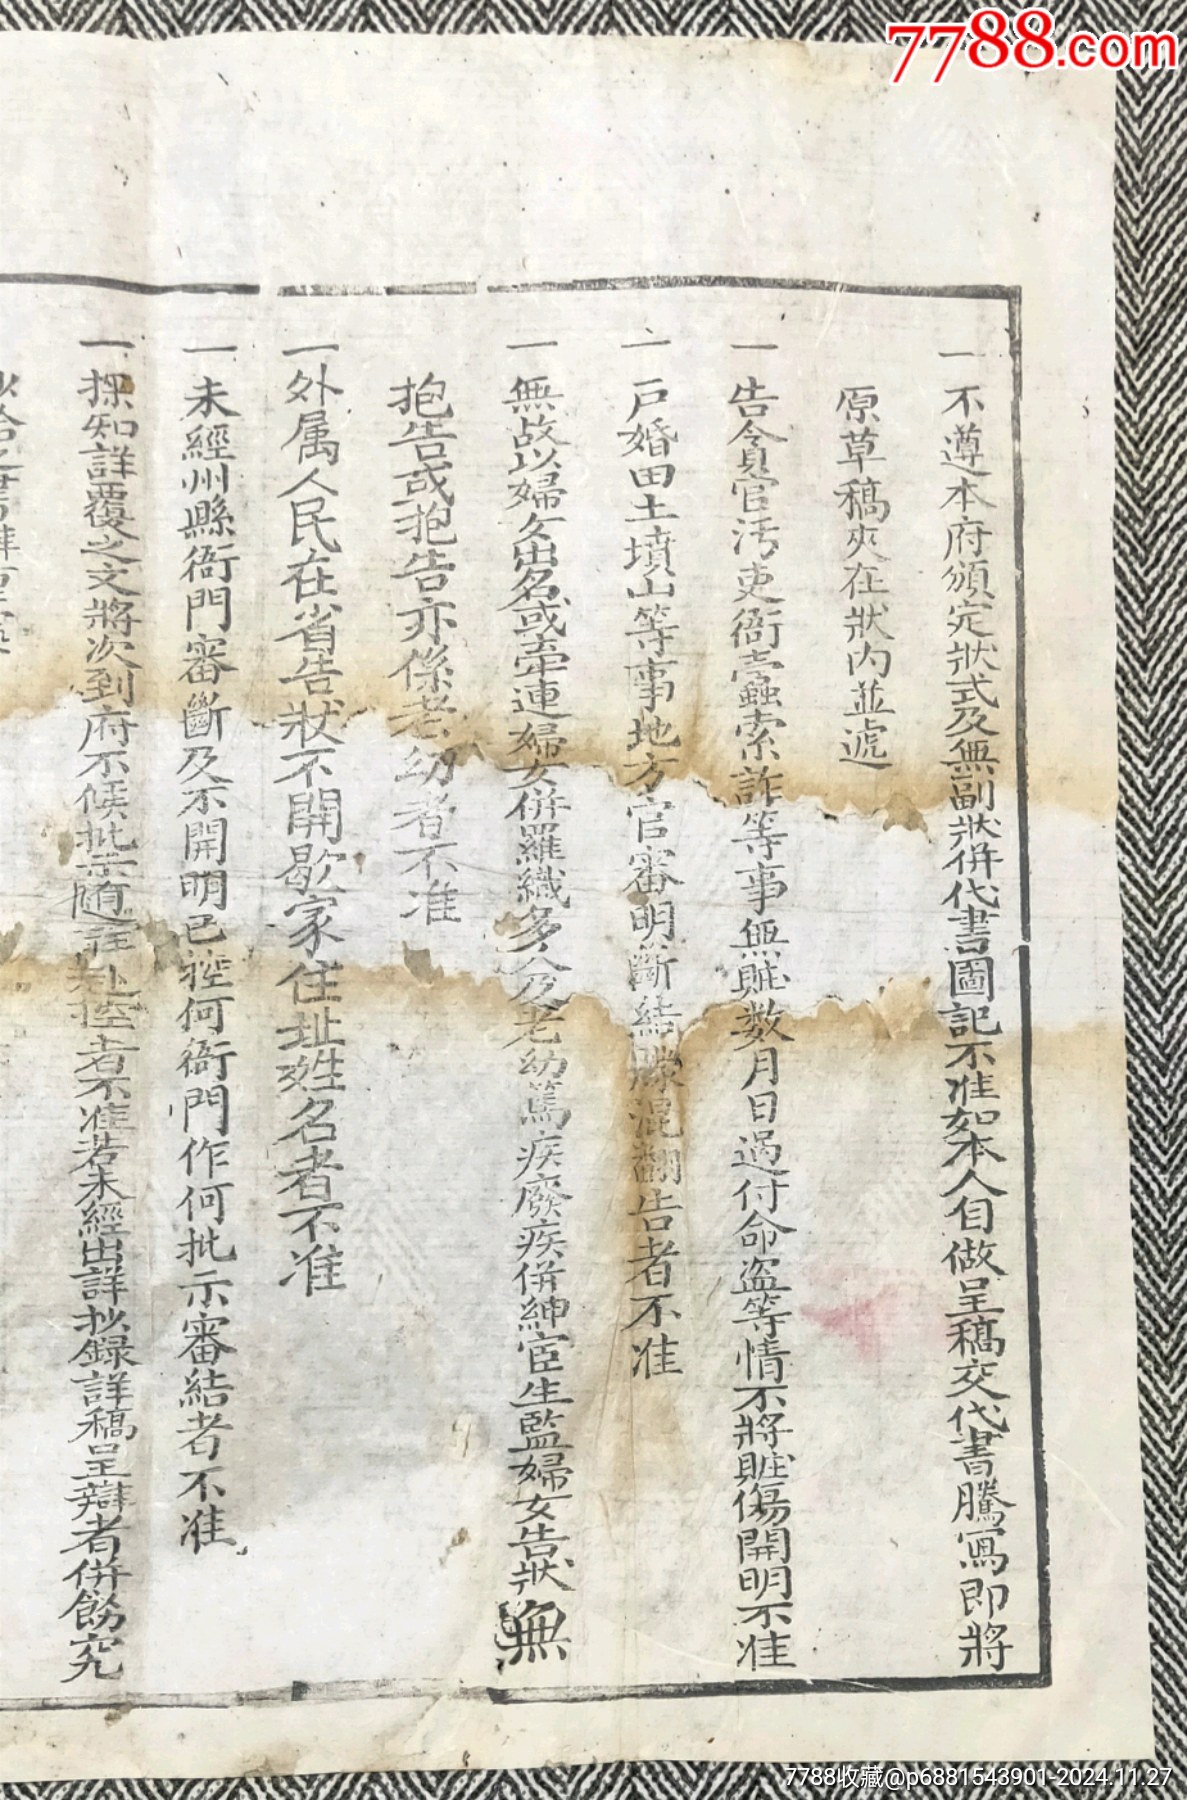 7788.com
一不遵本府頒定狀式及無副狀併代書圖記不准如本人自做呈稿交代書騰寫即將
原草稿夾在狀內並遞
一告貪官汚吏衙蠹索詐等事無賍数月日過付命盗等情不將賍傷開明不准
一戸婚田土墳山等事地方官審明斷結朦混翻告者不准
一無故以婦女出名或牽連婦女併羅織多人及老幼篤疾廢疾併紳宦生監婦女告狀無
抱告或抱告亦係老幼者不准
一外属人民在省告狀不開歇家住址姓名者不准
一未經州縣衙門審斷及不開明已控何衙門作何批示審結者不准
一探知詳覆之文將次到府不候批示随詳赴控者不准若未經出詳抄録詳稿呈辯者併飭究
7788收藏@p6881543901-2024.11.27